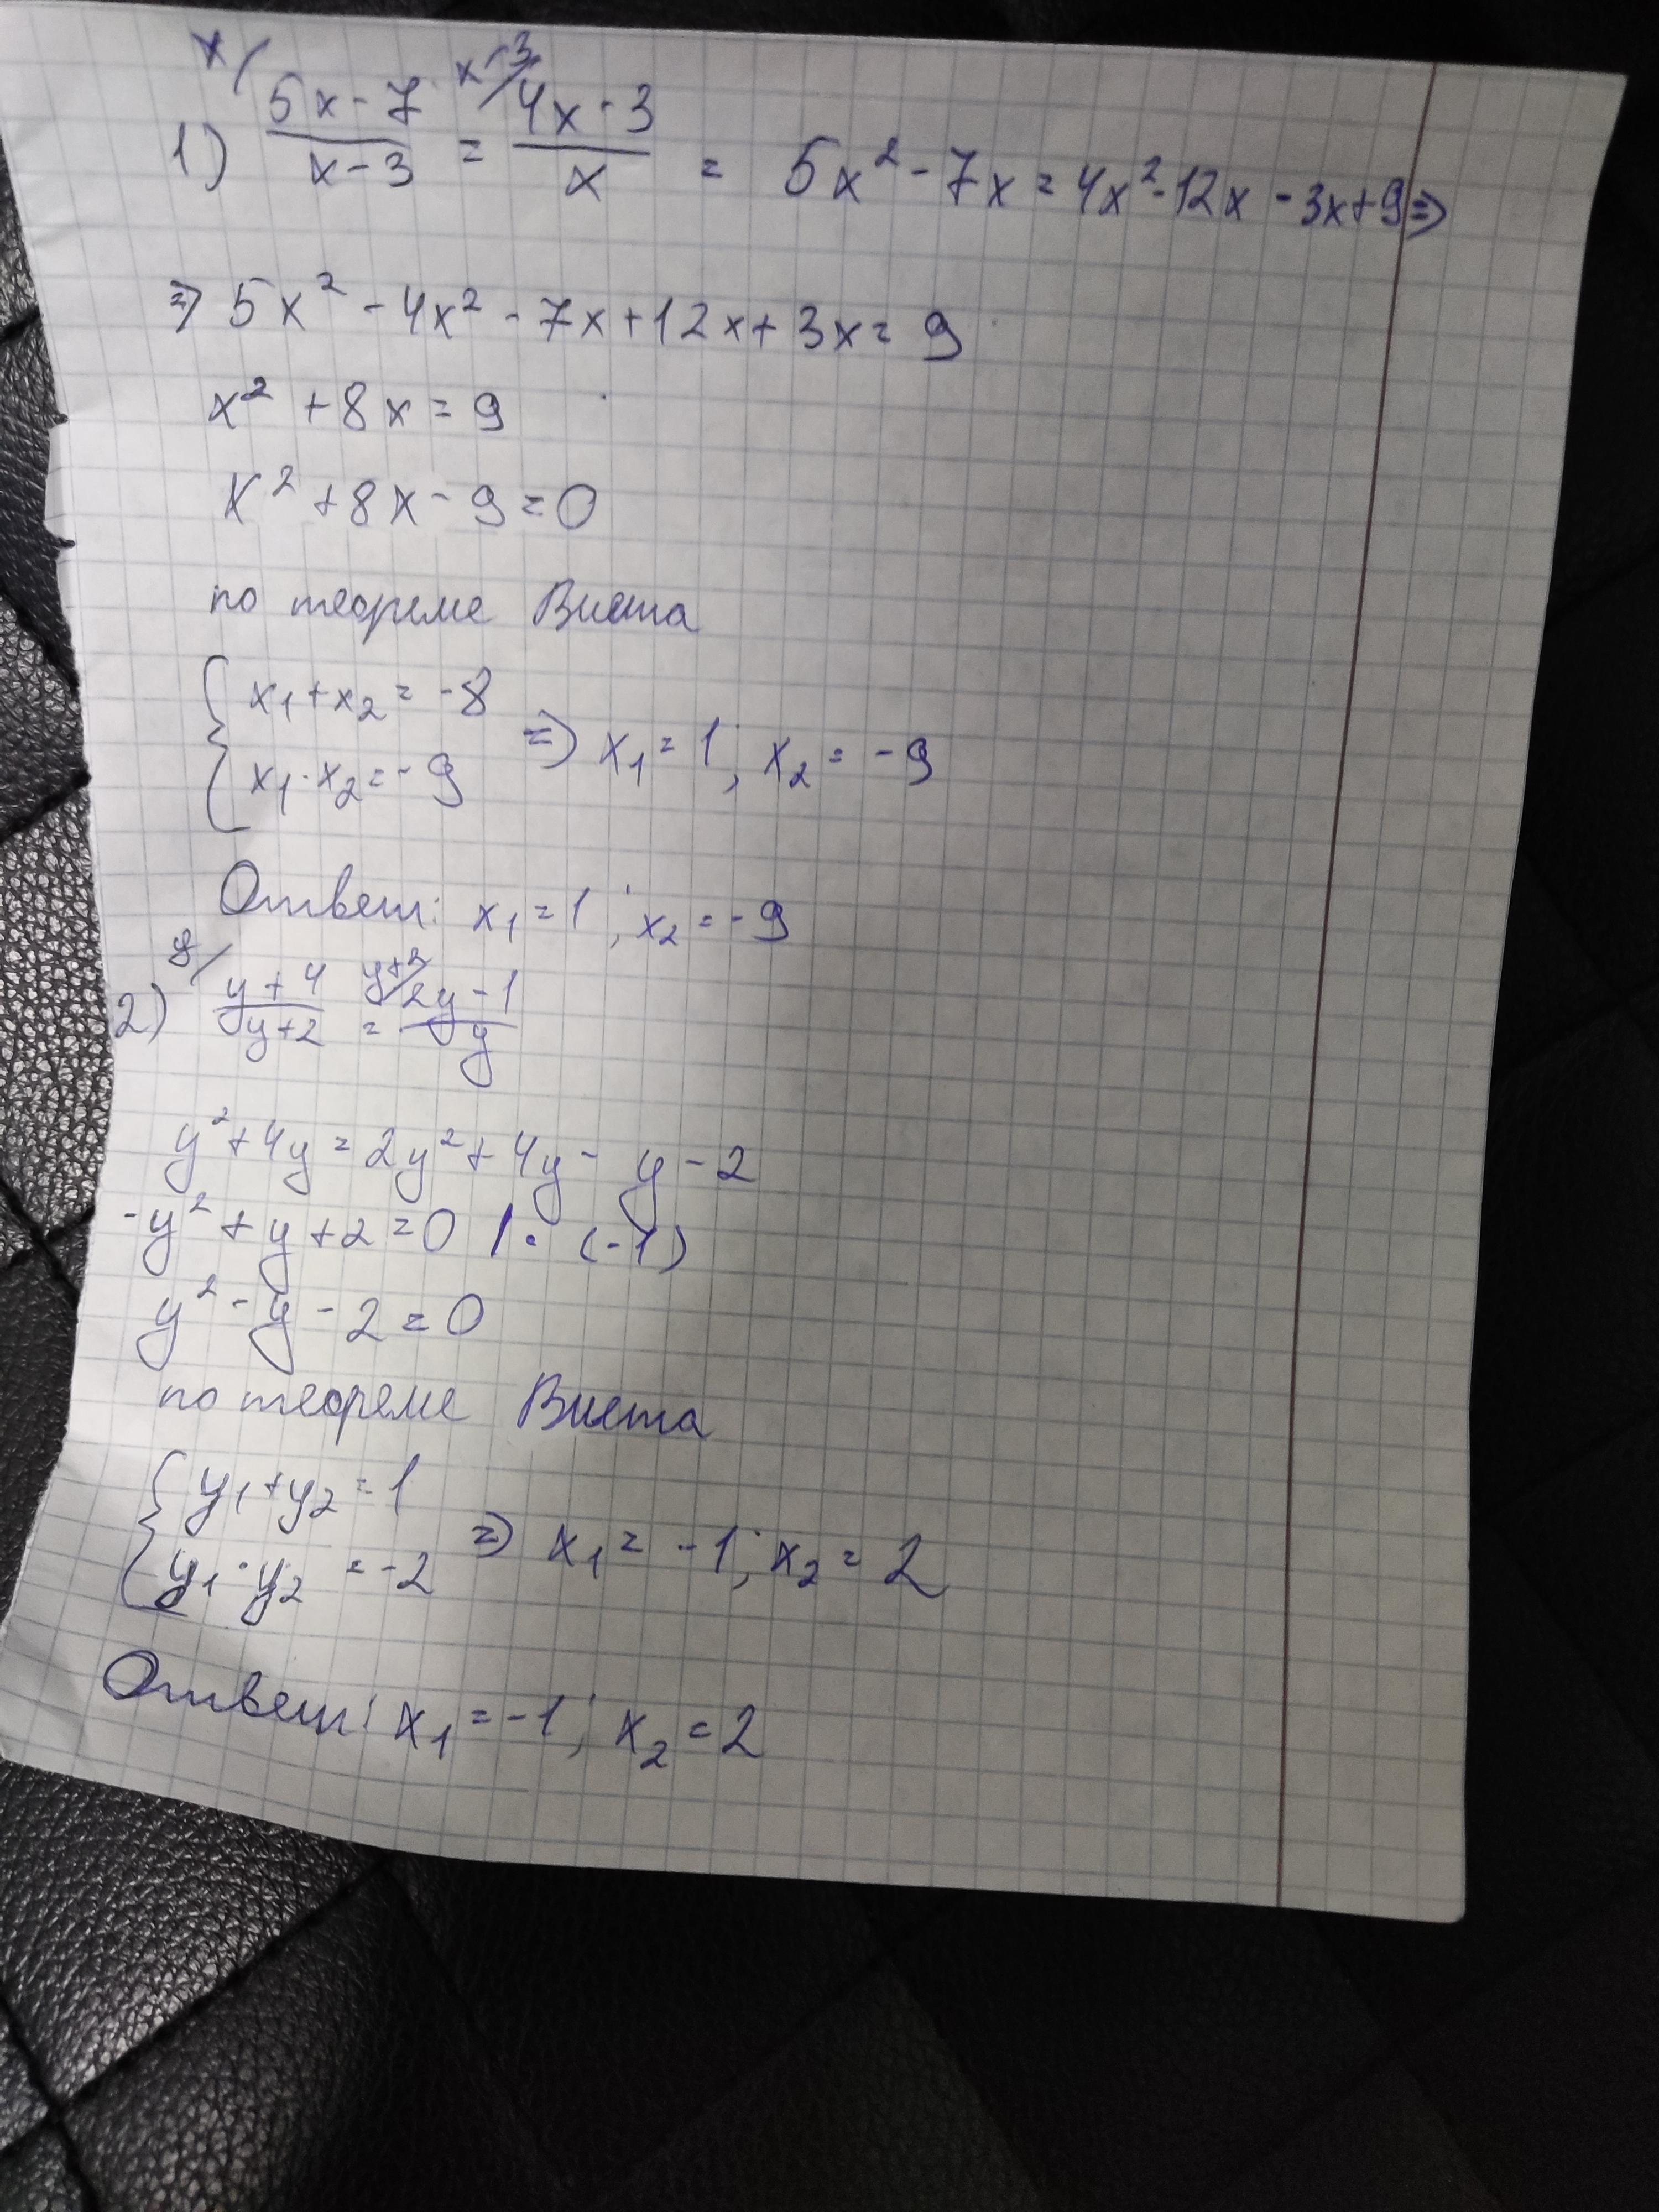 x/ x-3/
1) 5x-7/x-3 = 4x-3/x = 5x²-7x=4x²-12x-3x+9⇒
⇒ 5x²-4x²-7x+12x+3x=9
x²+8x=9
x²+8x-9=0
по теореме Виета
{x₁+x₂=-8
{x₁·x₂=-9 ⇒ x₁=1; x₂=-9
Ответ: x₁=1; x₂=-9
y+2/
2) y+4/y+2 = 2y-1/y
y²+4y=2y²+4y-y-2
-y²+y+2=0 |·(-1)
y²-y-2=0
по теореме Виета
{y₁+y₂=1
{y₁·y₂=-2 ⇒ x₁=-1; x₂=2
Ответ: x₁=-1; x₂=2